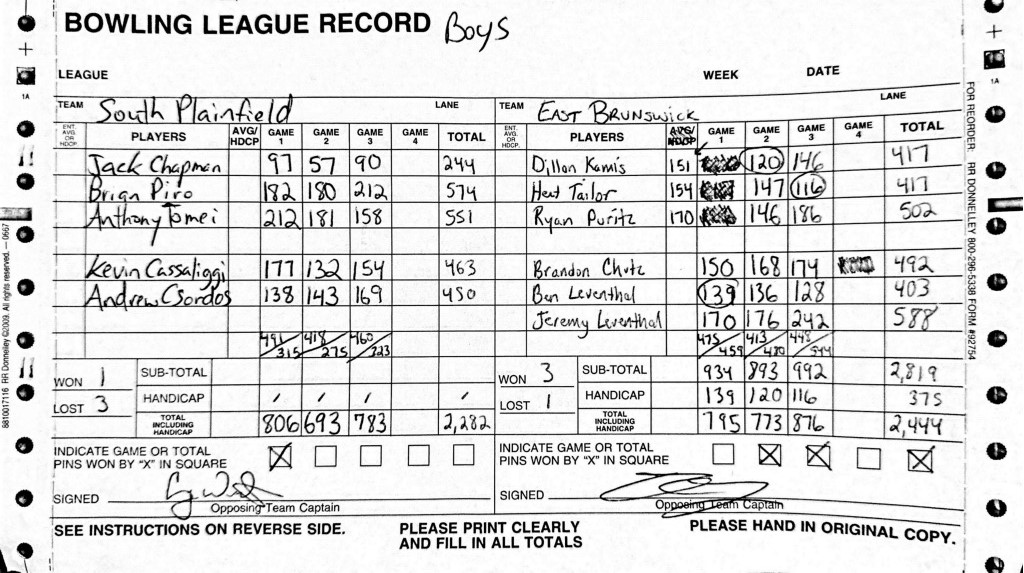 BOWLING LEAGUE RECORD Boys
LEAGUE WEEK DATE
TEAM South Plainfield LANE TEAM EAST BRUNSWICK LANE
ENT. AVG. OR HDCP. PLAYERS AVG/HDCP GAME 1 GAME 2 GAME 3 GAME 4 TOTAL ENT. AVG. OR HDCP. PLAYERS AVG/HDCP GAME 1 GAME 2 GAME 3 GAME 4 TOTAL
Jack Chapman 97 57 90 244 Dillon Kamis 151 120 146 417
Brian Piro 182 180 212 574 Hext Tailor 154 147 116 417
Anthony Tomei 212 181 158 551 Ryan Puritz 170 146 186 502
Kevin Cassaliggi 177 132 154 463 Brandon Chutz 150 168 174 492
Andrew Csordos 138 143 169 450 Ben Leventhal 139 136 128 403
Jeremy Leventhal 170 176 242 588
491/315 418/275 460/323 475/459 413/480 448/544
WON 1 SUB-TOTAL WON 3 SUB-TOTAL 934 893 992 2,819
LOST 3 HANDICAP / / / / LOST 1 HANDICAP 139 120 116 375
TOTAL INCLUDING HANDICAP 806 693 783 2,282 TOTAL INCLUDING HANDICAP 795 773 876 2,444
INDICATE GAME OR TOTAL PINS WON BY "X" IN SQUARE X INDICATE GAME OR TOTAL PINS WON BY "X" IN SQUARE X X X
SIGNED SIGNED
Opposing Team Captain Opposing Team Captain
SEE INSTRUCTIONS ON REVERSE SIDE. PLEASE PRINT CLEARLY AND FILL IN ALL TOTALS PLEASE HAND IN ORIGINAL COPY.
1A
1A
8810017116 RR Donnelley ©2009. All rights reserved. — 0667
FOR REORDER: RR DONNELLEY 800-296-5339 FORM #92754